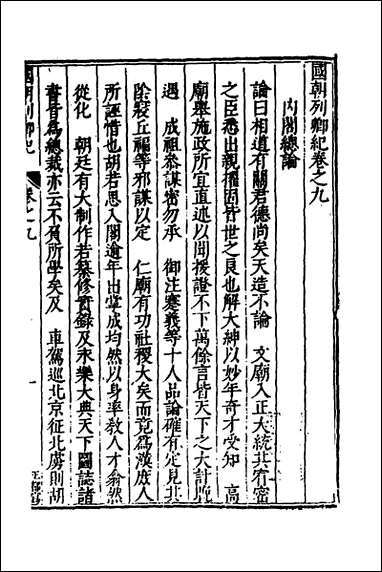 國朝列卿紀卷之九
內閣總論
論曰相道有關君德尚矣天造不論 文廟入正大統北有密
之臣悉出親擢固皆世之良也解大紳以妙年奇才受知 高
廟舉施政所宜直述以聞援證不下萬餘言皆天下之大計既
遇 成祖叅謀密勿承 御注蹇義等十人品論確有定見其
除寢丘福等邪謀以定 仁廟有功社稷大矣而竟為漢庶人
所誣惜也胡若思入閣逾年出掌成均然以身率敎人才翕然
從化 朝廷有大制作若纂修實録及永樂大典天下圖誌諸
書皆為總裁亦云不負所學矣及 車駕巡北京征北虜則胡
國朝列卿紀
卷之九
一